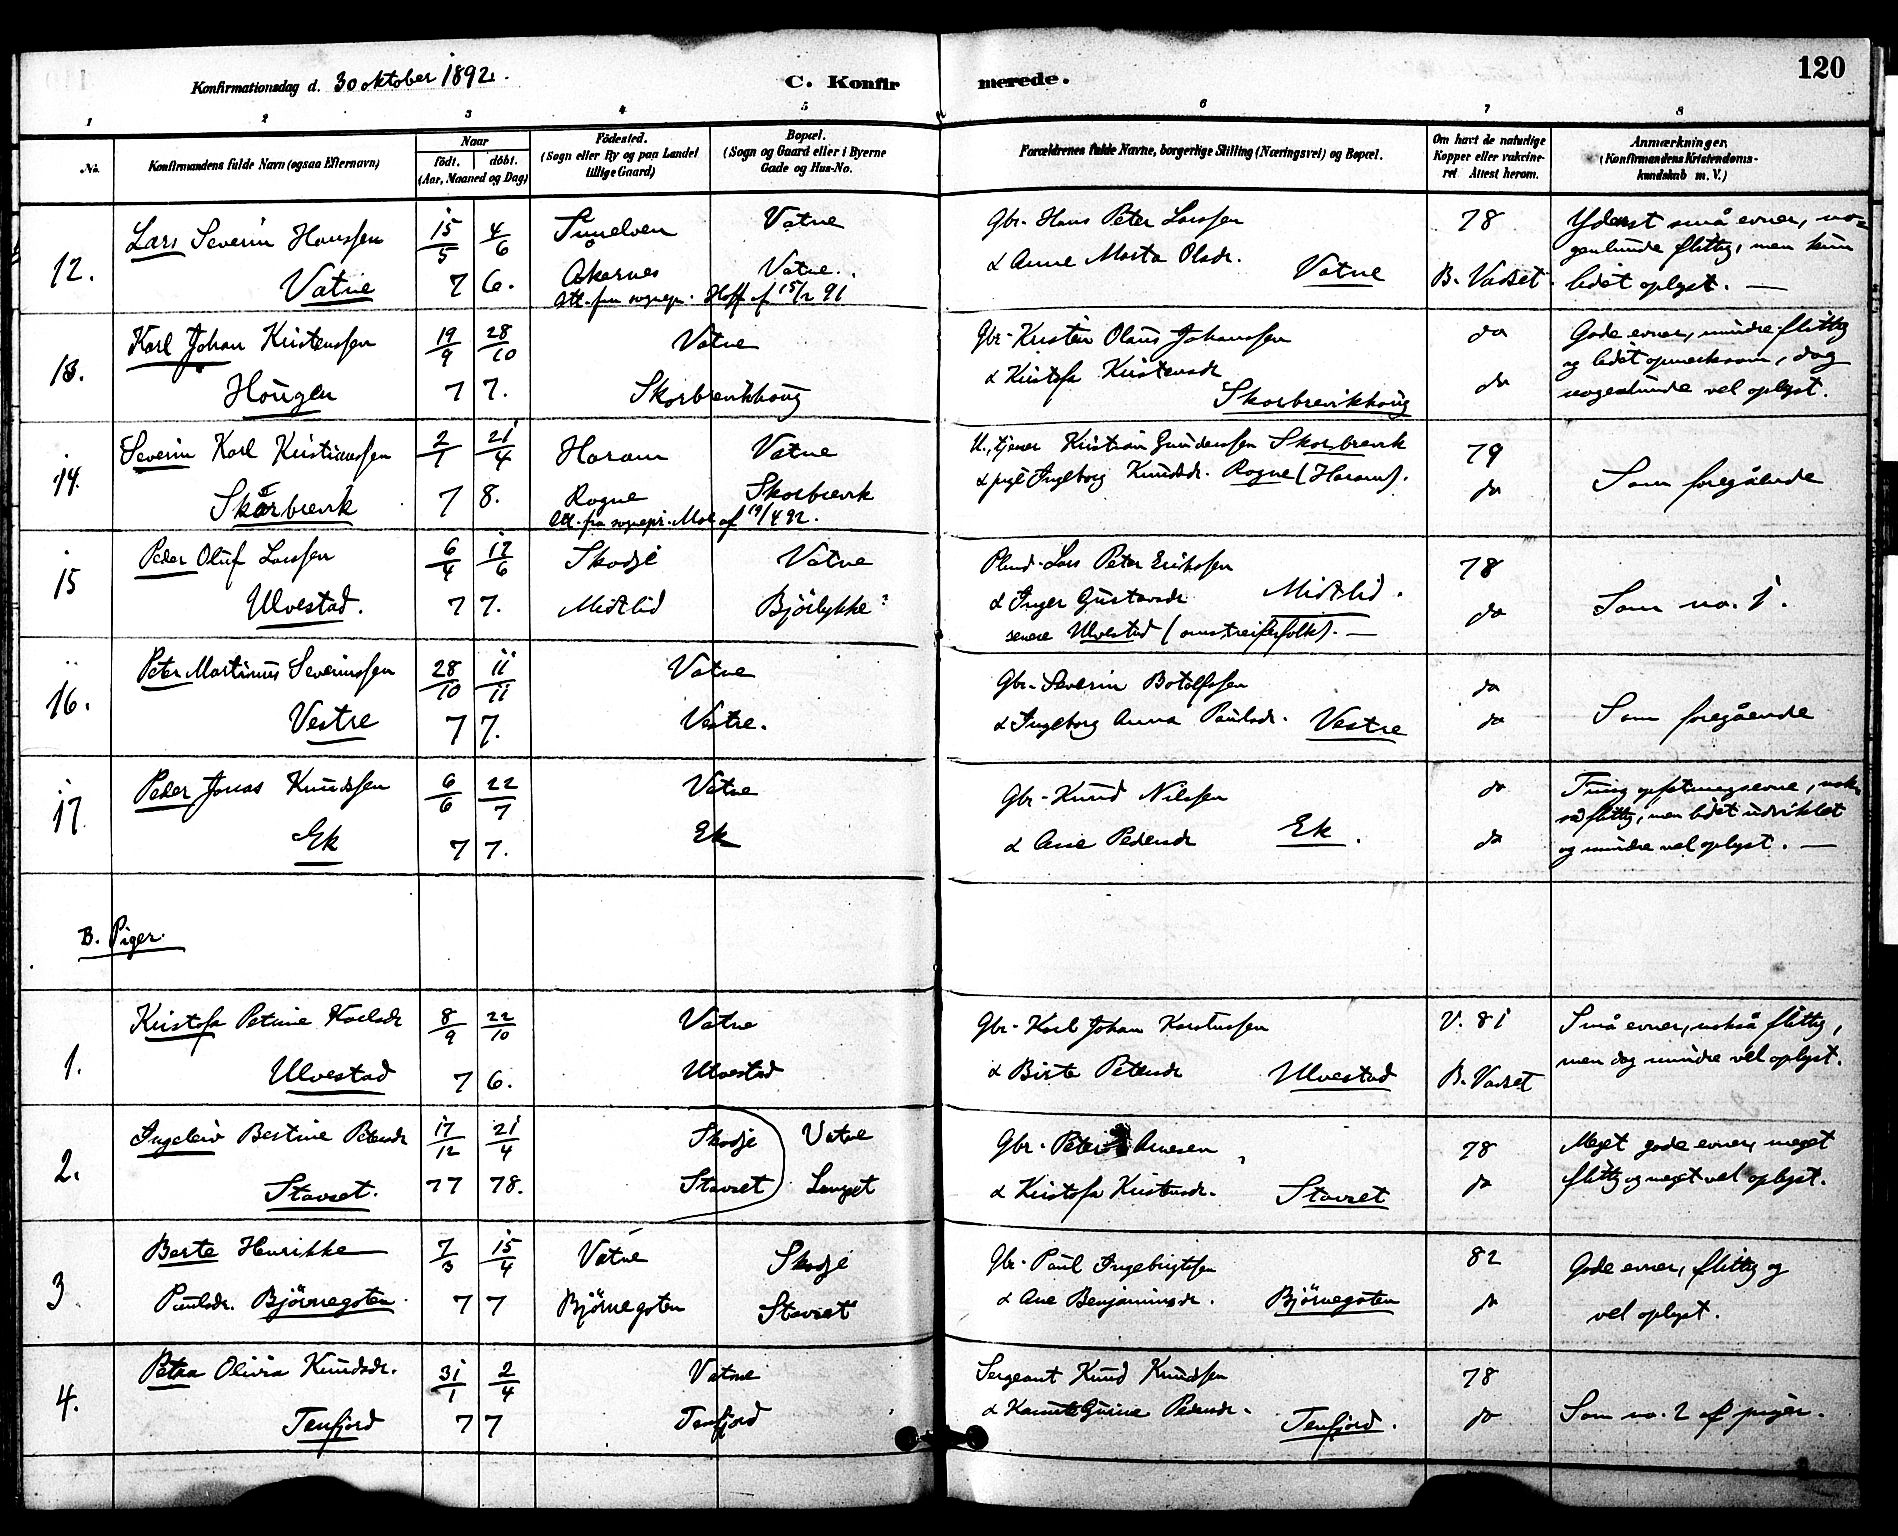 Konfirmationsdag d. 30 oktober 1892.
C. Konfirmerede.
120
1 2 3 4 5 6 7 8
No.
Konfirmandens fulde Navn (ogsaa Efternavn)
Naar
födt. döbt.
(Aar, Maaned og Dag)
Födested.
(Sogn eller By og paa Landet
tillige Gaard)
Bopæl.
(Sogn og Gaard eller i Byerne
Gade og Hus-No.
Forældrenes fulde Navne, borgerlige Stilling (Næringsvei) og Bopæl.
Om havt de naturlige
Kopper eller vakcine-
ret Attest herom.
Anmærkninger
(Konfirmandens Kristendoms-
kundskab m. V.)
12. Lars Severin Hanssen 15/5 4/6 Sunelven Vatne Gbr. Hans Peter Larssen 78 Yderst små evner, no-
genlunde flittig, men kun
Vatne 7 6. Akernes Vatne. & Anne Marta Olsdr. Vatne B. Vadset lidet oplyst. —
Att. fra sognepr. Hoff af 15/2 91
13. Karl Johan Kristenssen 19/9 28/10 Vatne Gbr. Kristen Olaus Johanssen do Gode evner, mindre flittig
og lidet opmerksom, dog
Hougen 7 7. Skorbrevikhoug & Kristofa Kristensdr Skorbrevikhoug do nogenlunde vel oplyst.
14. Severin Karl Kristianssen 2/1 21/4 Haram Vatne U., tjener Kristian Gunderssen Skorbrevk 79 Som foregående
Skorbrevk 7 8. Rogne Skorbrevk & pige Ingeborg Knudsdr. Rogne (Haram). do
Att. fra sognepr. Moe af 19/4 92.
15 Peder Oluf Larssen 6/4 17/6 Skodje Vatne Plmd. Lars Peter Erikssen 78 Som no. 1.
Ulvestad. 7 7. Midtlid Bjørlykke? & Inger Gustavsdr Midtlid. do
senere Ulvestad (omstreiferfolk). —
16. Peter Martinus Severinssen 28/10 11/11 Vatne Gbr. Severin Botolfssen do Som foregående
Vestre 7 7. Vestre. & Ingeborg Anna Paulsdr. Vestre do
17 Peder Jonas Knudssen 6/6 22/7 Vatne Gbr. Knud Nilssen do Tung opfatningsevne, nok-
så flittig, men lidet udviklet
Ek 7 7. Ek & Ane Pedersdr Ek. do og mindre vel oplyst. —
B. Piger.
1. Kristofa Petrine Karlsdr 8/9 22/10 Vatne Gbr. Karl Johan Karstenssen V. 81 Små evner, nokså flittig,
men dog mindre vel oplyst.
Ulvestad 7 6. Ulvestad & Birte Petersdr Ulvestad B. Vadset
2. Ingeleiv Bertine Petersdr 17/12 21/4 Skodje Vatne Gbr. Peter Arnesen 78 Meget gode evner, meget
Stavset. 77 78. Stavset Langset & Kristofa Kristensdr. Stavset do flittig og meget vel oplyst.
3. Berte Henrikke 7/3 15/4 Vatne Skodje Gbr. Paul Ingebrigtsen 82 Gode evner, flittig og
Paulsdr. Bjørnegoten. 7 7 Bjørnegoten Stavset & Ane Benjaminsdr. Bjørnegoten do vel oplyst.
4. Petra Olivia Knudsdr. 31/1 2/4 Vatne Sergeant Knud Knudssen 78 Som no. 2 af piger.
Tenfjord 7 7 Tenfjord & Gurine Pedersdr. Tenfjord. do